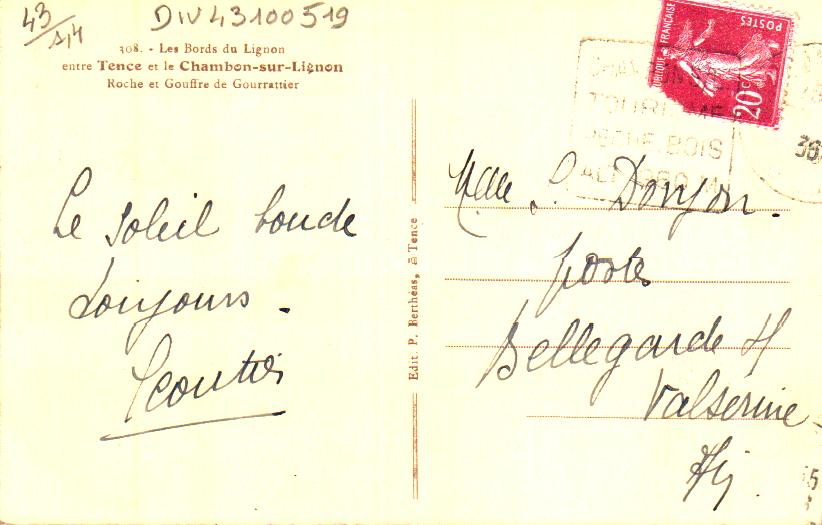 43/A14
DIV43100519
308. - Les Bords du Lignon
entre Tence et le Chambon-sur-Lignon
Roche et Gouffre de Gourrattier
RÉPUBLIQUE FRANÇAISE
POSTES
20c
TOURISME
PECHE. BOIS
ALT. 960 M
36
Le Soleil boude
toujours.
Edit. P. Berthéas, à Tence
Mlle L. Donjon.
poste
Bellegarde s/
Valserine
Ain